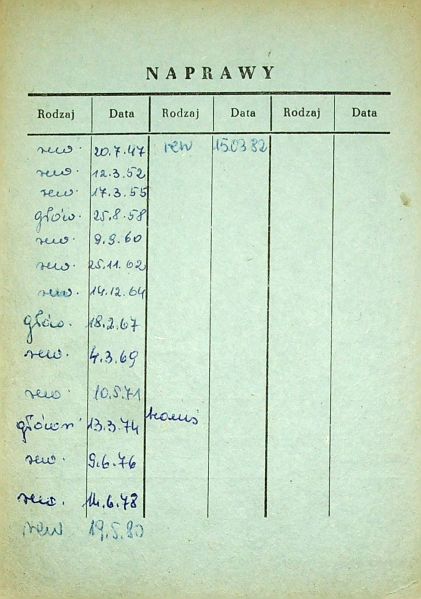 NAPRAWY
Rodzaj Data Rodzaj Data Rodzaj Data
rew. 20.7.47 rew 150382
rew. 12.3.52
rew. 17.3.55
głów. 25.8.58
rew. 9.9.60
rew. 25.11.62
rew. 14.12.64
głów. 18.2.67
rew. 4.3.69
rew. 10.5.71
główn 13.3.74
rew. 9.6.76
rew. 14.6.78
rew 19.5.80